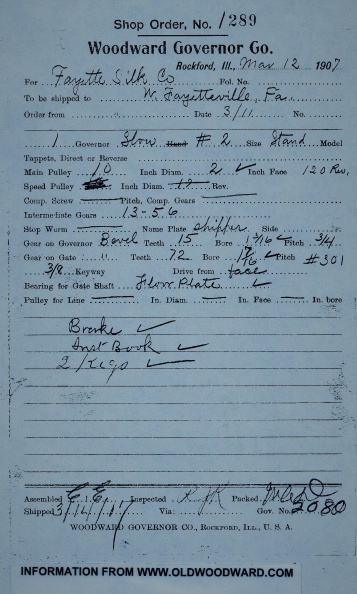 Shop Order, No. 1289
Woodward Governor Co.
Rockford, Ill., Mar 12 1907
For Fayette Silk Co Fol. No.
To be shipped to W. Fayetteville, Pa.
Order from " Date 3/11
1 Governor Slow Hand # 2 Size Stand Model
Tappets, Direct or Reverse
Main Pulley 10 Inch Diam. 2 ✓ Inch Face 120 Rev,
Speed Pulley Inch Diam. Rev.
Comp. Screw Pitch, Comp. Gears
Intermediate Gears 13-56
Stop Worm Name Plate Shipper Side
Gear on Governor Bevel Teeth 15 Bore 1 3/16 ✓ Pitch 3/4
Gear on Gate " Teeth 72 Bore Pitch #301
3/8 Keyway Drive from face
Bearing for Gate Shaft Floor Plate ✓
Pulley for Line In. Diam. In. Face In. bore
Brake ✓
Inst Book ✓
2 Kegs ✓
Assembled Inspected Packed
Shipped 3/14/07 Via: Gov. No. 2080
WOODWARD GOVERNOR CO., ROCKFORD, ILL., U. S. A.
INFORMATION FROM WWW.OLDWOODWARD.COM